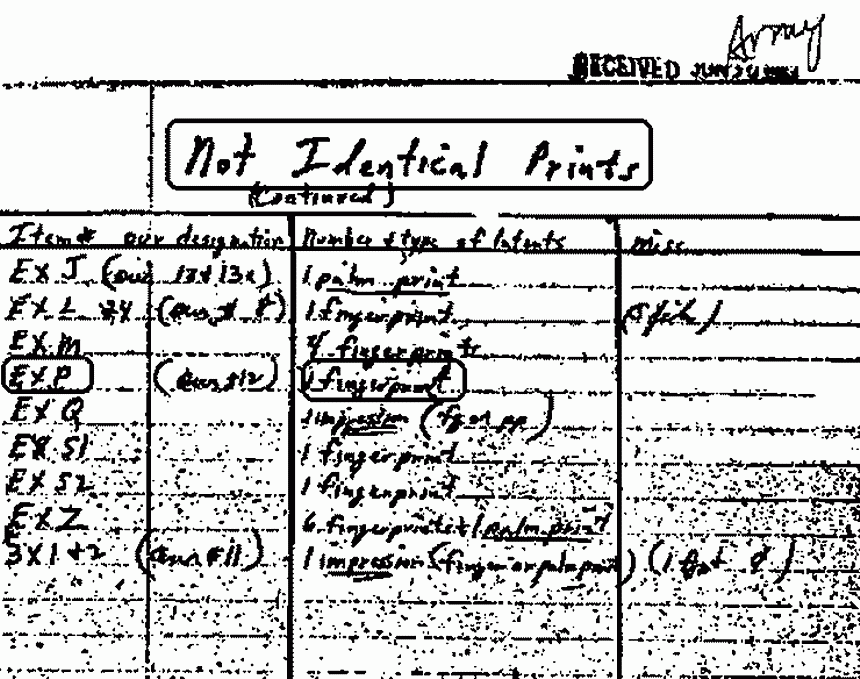 Array
RECEIVED
Not Identical Prints
(Continued)
Item# our designation Number & type of latents Misc
EX J (our 13+13a) 1 palm print
EX L (our # 8) 1 fingerprint
EX M 4 fingerprints
EX P (our #12) 1 fingerprint
EX Q 1 impression (fg or pp)
EX S1 1 fingerprint
EX S2 1 fingerprint
EX Z 6 fingerprints + 1 palm print
3X1+2 (our #11) 1 impression (finger or palm print)